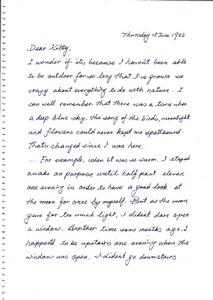 Thursday 15 June 1944
Dear Kitty,
I wonder if it's because I haven't been able
to be outdoor for so long that I've grown so
crazy about everything to do with nature. I
can well remember that there was a time when
a deep blue sky, the song of the birds, moonlight
and flowers could never kept me spellbound.
That's changed since I was here.
... For example, when it was so warm, I stayed
awake on purpose until half past eleven
one evening in order to have a good look at
the moon for once by myself. But as the moon
gave far too much light, I didn't dare open
a window. Another time some months ago, I
happend to be upstairs one evening when the
window was open. I didn't go downstairs